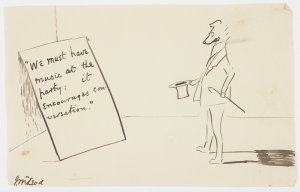 "We must have
music at the
party; it
encourages con
versation."
JMcLeod